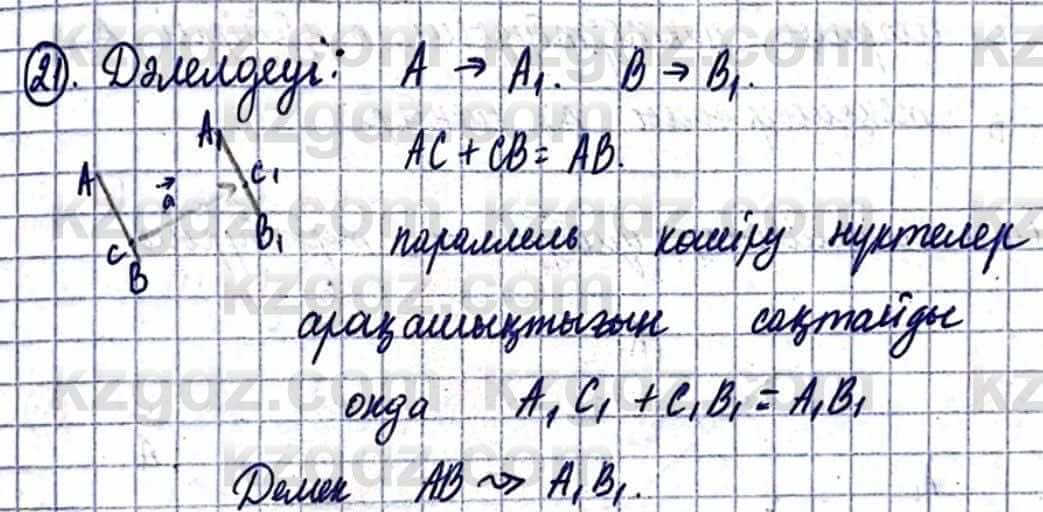 21. Дәлелдеуі: A → A₁. B → B₁.
AC + CB = AB.
A C B a⃗ A₁ C₁ B₁
параллель көшіру нүктелер
арақашықтығын сақтайды
онда A₁C₁ + C₁B₁ = A₁B₁
Демек AB ⇝ A₁B₁.
kzgdz.com